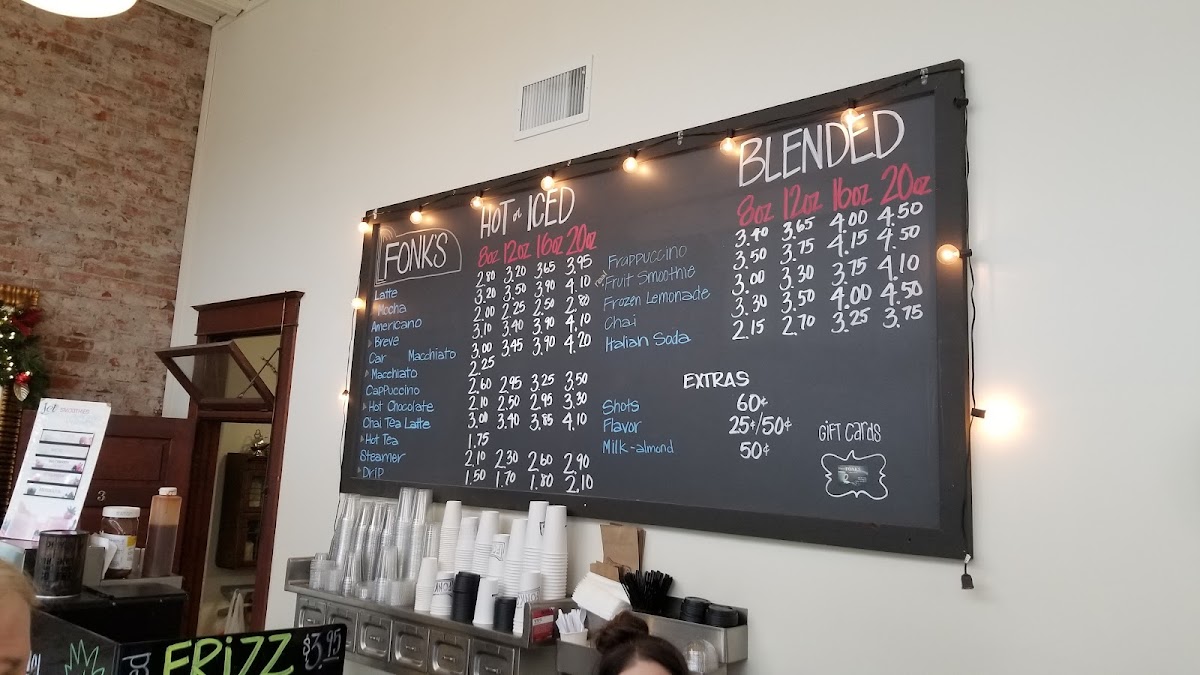 FONK'S
HOT or ICED
8oz 12oz 16oz 20oz
Latte 2.80 3.20 3.65 3.95
Mocha 3.20 3.50 3.90 4.10
Americano 2.00 2.25 2.50 2.80
Breve 3.10 3.40 3.90 4.10
Car Macchiato 3.00 3.45 3.90 4.20
Macchiato 2.25
Cappuccino 2.60 2.95 3.25 3.50
Hot Chocolate 2.10 2.50 2.95 3.30
Chai Tea Latte 3.00 3.40 3.85 4.10
Hot Tea 1.75
Steamer 2.10 2.30 2.60 2.90
Drip 1.50 1.70 1.80 2.10
BLENDED
8oz 12oz 16oz 20oz
Frappuccino 3.40 3.65 4.00 4.50
Fruit Smoothie 3.50 3.75 4.15 4.50
Frozen Lemonade 3.00 3.30 3.75 4.10
Chai 3.30 3.50 4.00 4.50
Italian Soda 2.15 2.70 3.25 3.75
EXTRAS
Shots 60¢
Flavor 25¢/50¢
Milk-almond 50¢
GIFT CARDS
3
FRiZZ $3.95